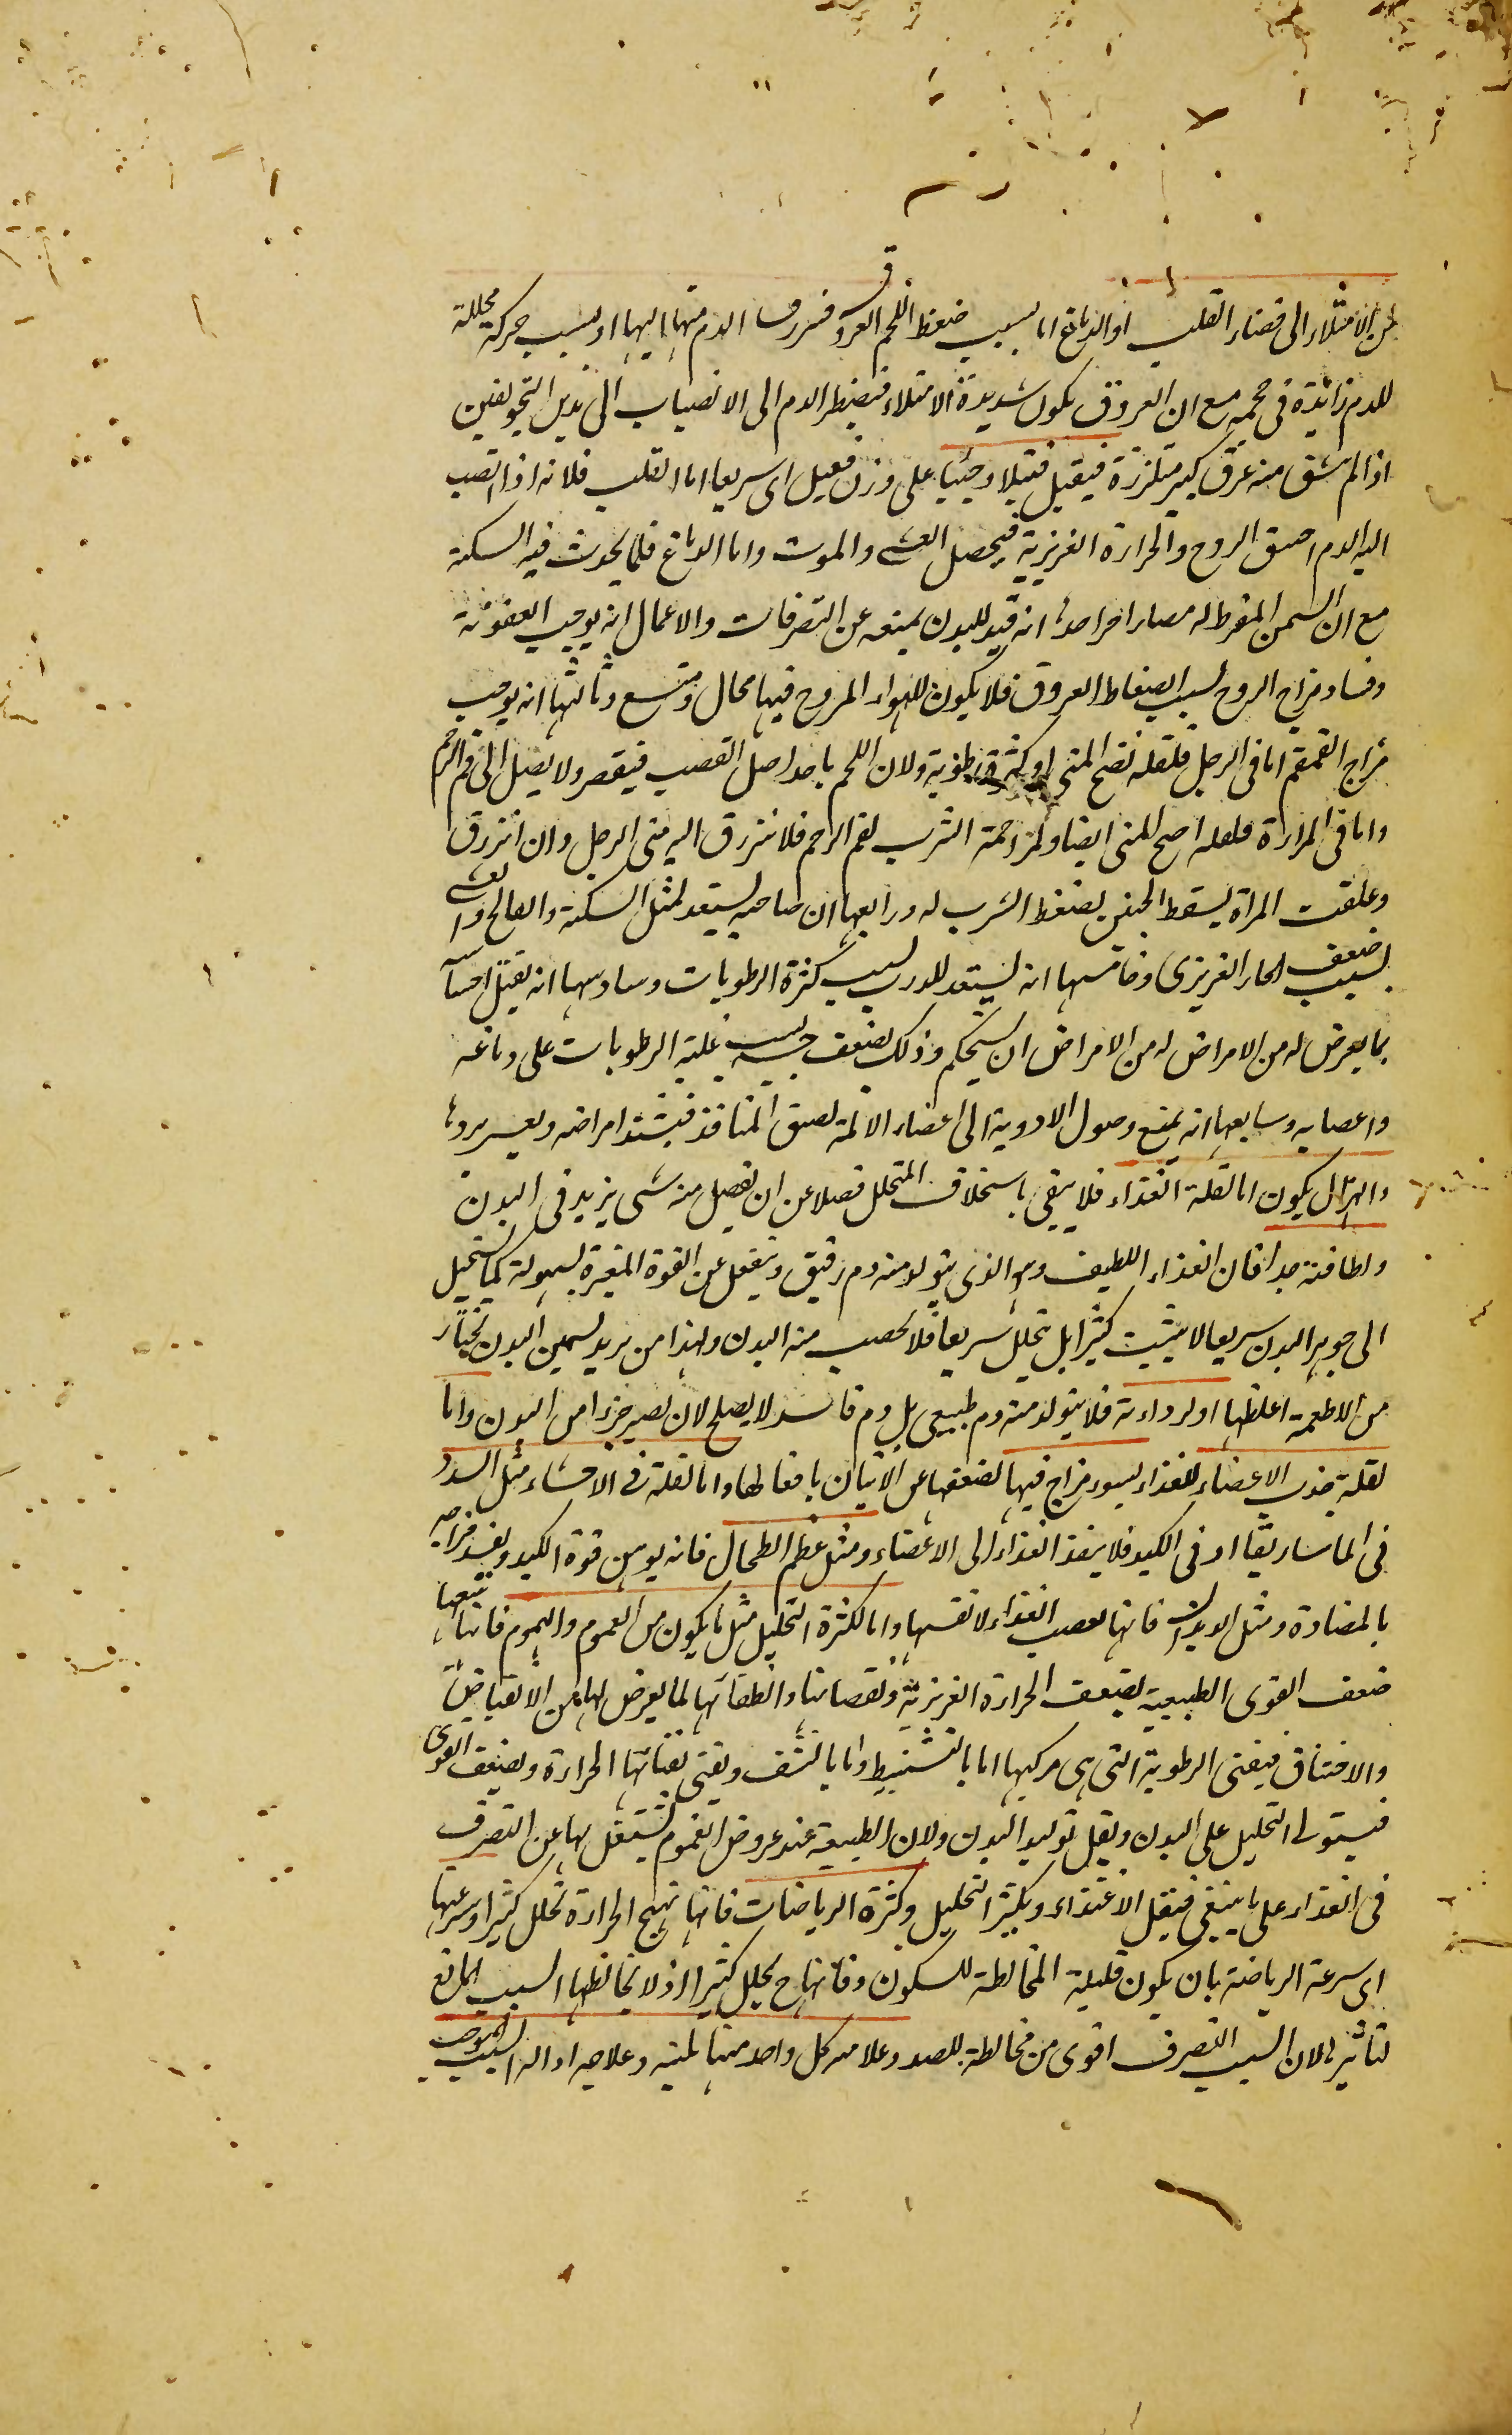 من الامتلاء الى فضاء القلب او الدماغ اما بسبب ضغط اللحم العروق الدم منها اليها او بسبب حركة محللة
للدم زائدة فى حجمه مع ان العروق يكون شديدة الامتلاء فيضطر الدم الى الانصباب الى هذين التجويفين
اذا لم ينشق منه عرق كبير متلززة فيقبل قتيلا وحييا على وزن فعيل اى سريعا اما القلب فلانه اذا انصب
اليه الدم احنق الروح والحرارة الغريزية فيحصل الغشى والموت واما الدماغ فلما يحدث فيه السكتة
مع ان السمن المفرط له مضار اخر احدها انه قيد للبدن يمنعه عن التصرفات والاعمال انه يوجب العفونة
وفساد مزاج الروح بسبب انضغاط العروق فلا يكون للهواء المروح فيها مجال ومتسع وثالثها انه يوجب
مزاج العقم اما فى الرجل فلقلة نضج المنى او كثرة رطوبة ولان اللحم ياخذ اصل القضيب فيقصر ولا يصل الى فم الرحم
واما فى المراة فلقلة المنى ايضا ولمزاحمة الثرب لفم الرحم فلا ينزرق اليه منى الرجل وان انزرق
وعلقت المراة يسقط الجنين لضغط الثرب له ورابعها ان صاحبه يستعد لمثل السكتة والفالج والغشى
بسبب ضعف الحار الغريزى وخامسها انه يستعد للذرب بسبب كثرة الرطوبات وسادسها انه يقل احساسه
بما يعرض له من الامراض له من الامراض ان يستحكم وذلك لضعف حسه بسبب غلبة الرطوبات على دماغه
واعصابه وسابعها انه يمنع وصول الادوية الى اعضاء الالمة لضيق المنافذ فيشتد امراضه ويعسر برءها
والهزال يكون اما لقلة الغذاء فلا يبقى باستخلاف المتحلل فضلا عن ان يفضل منه شى يزيد فى البدن
ولطافته جدا فان الغذاء اللطيف وهو الذى يتولد منه دم رقيق وينفعل عن القوة المغيرة بسهولة كما يستحيل
الى جوهر البدن سريعا لا يثبت كثيرا بل يتحلل سريعا فلا يخصب منه البدن ولهذا من يريد تسمين البدن يختار
من الاطعمة اغلظها او لرداءته فلا يتولد منه دم طبيعى بل دم فاسد لا يصلح لان يصير جزءا من البدن واما
لقلة جذب الاعضاء للغذاء لسوء مزاج فيها لضعفها عن الاتيان بافعالها واما لقلة فى الاحشاء مثل السدد
فى الماساريقا او فى الكبد فلا ينفذ الغذاء الى الاعضاء ومثل عظم الطحال فانه يوهن قوة الكبد ويفسد مزاجه
بالمضادة ومثل الديدان فانها تغصب الغذاء لانفسها واما لكثرة التحليل مثل ما يكون من الغموم والهموم فانها يتبعها
ضعف القوى الطبيعية لضعف الحرارة الغريزية ونقصانها وانطفائها لما يعرض لها من الانقباض
والاختناق فيفنى الرطوبة التى هى مركبها اما بالتشيط واما بالنشف ويفنى بفنائها الحرارة ويضعف القوى
فيستولى التحليل على البدن ويقل توليد البدن ولان الطبيعة عند عروض الغموم تشتغل بها عن التصرف
فى الغذاء على ما ينبغى فيقل الاغتذاء ويكثر التحليل وكثرة الرياضات فانها تهيج الحرارة تحلل كثيرا وسرعتها
اى سرعة الرياضة بان يكون قليلة المخالطة للسكون وفانها ح يحلل كثيرا اذ لا يخالطها السبب المانع
لتاثيرها لان السبب الصرف اقوى من مخالطة بالضد وعلامة كل واحد منها بينة وعلاجه ازالة السبب الموجب